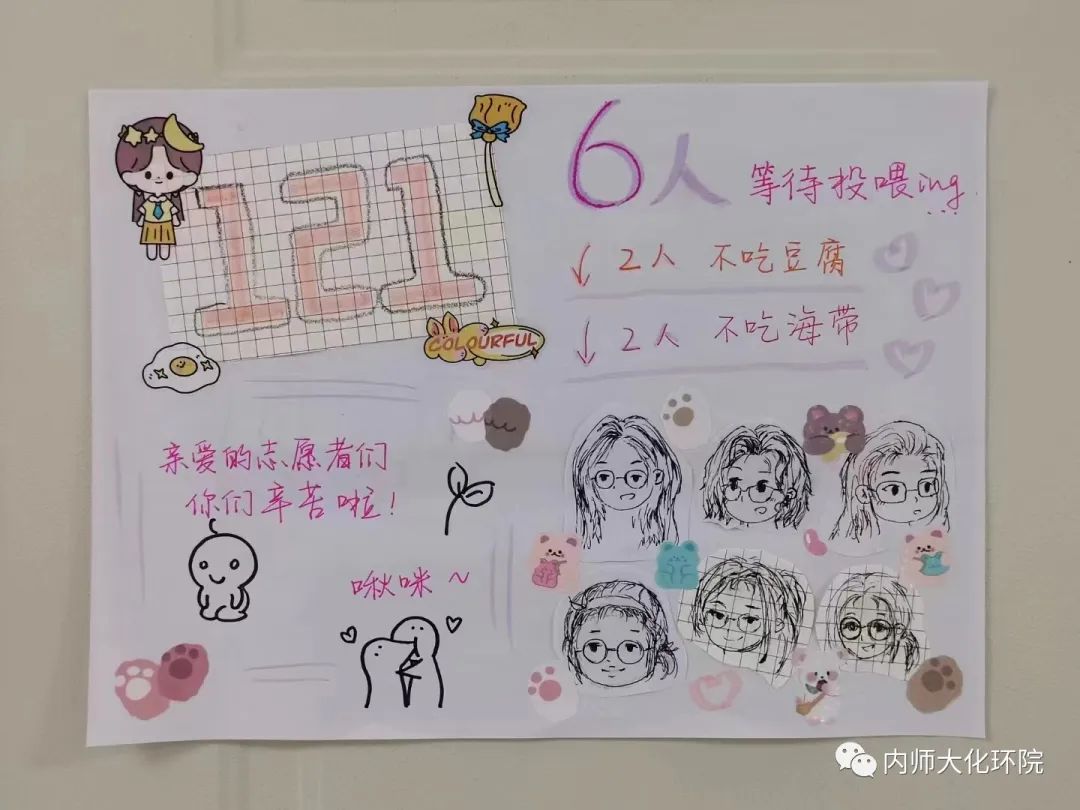 121
COLOURFUL
6人 等待投喂ing...
↓ 2人 不吃豆腐
↓ 2人 不吃海带
亲爱的志愿者们
你们辛苦啦!
啾咪~
内师大化环院